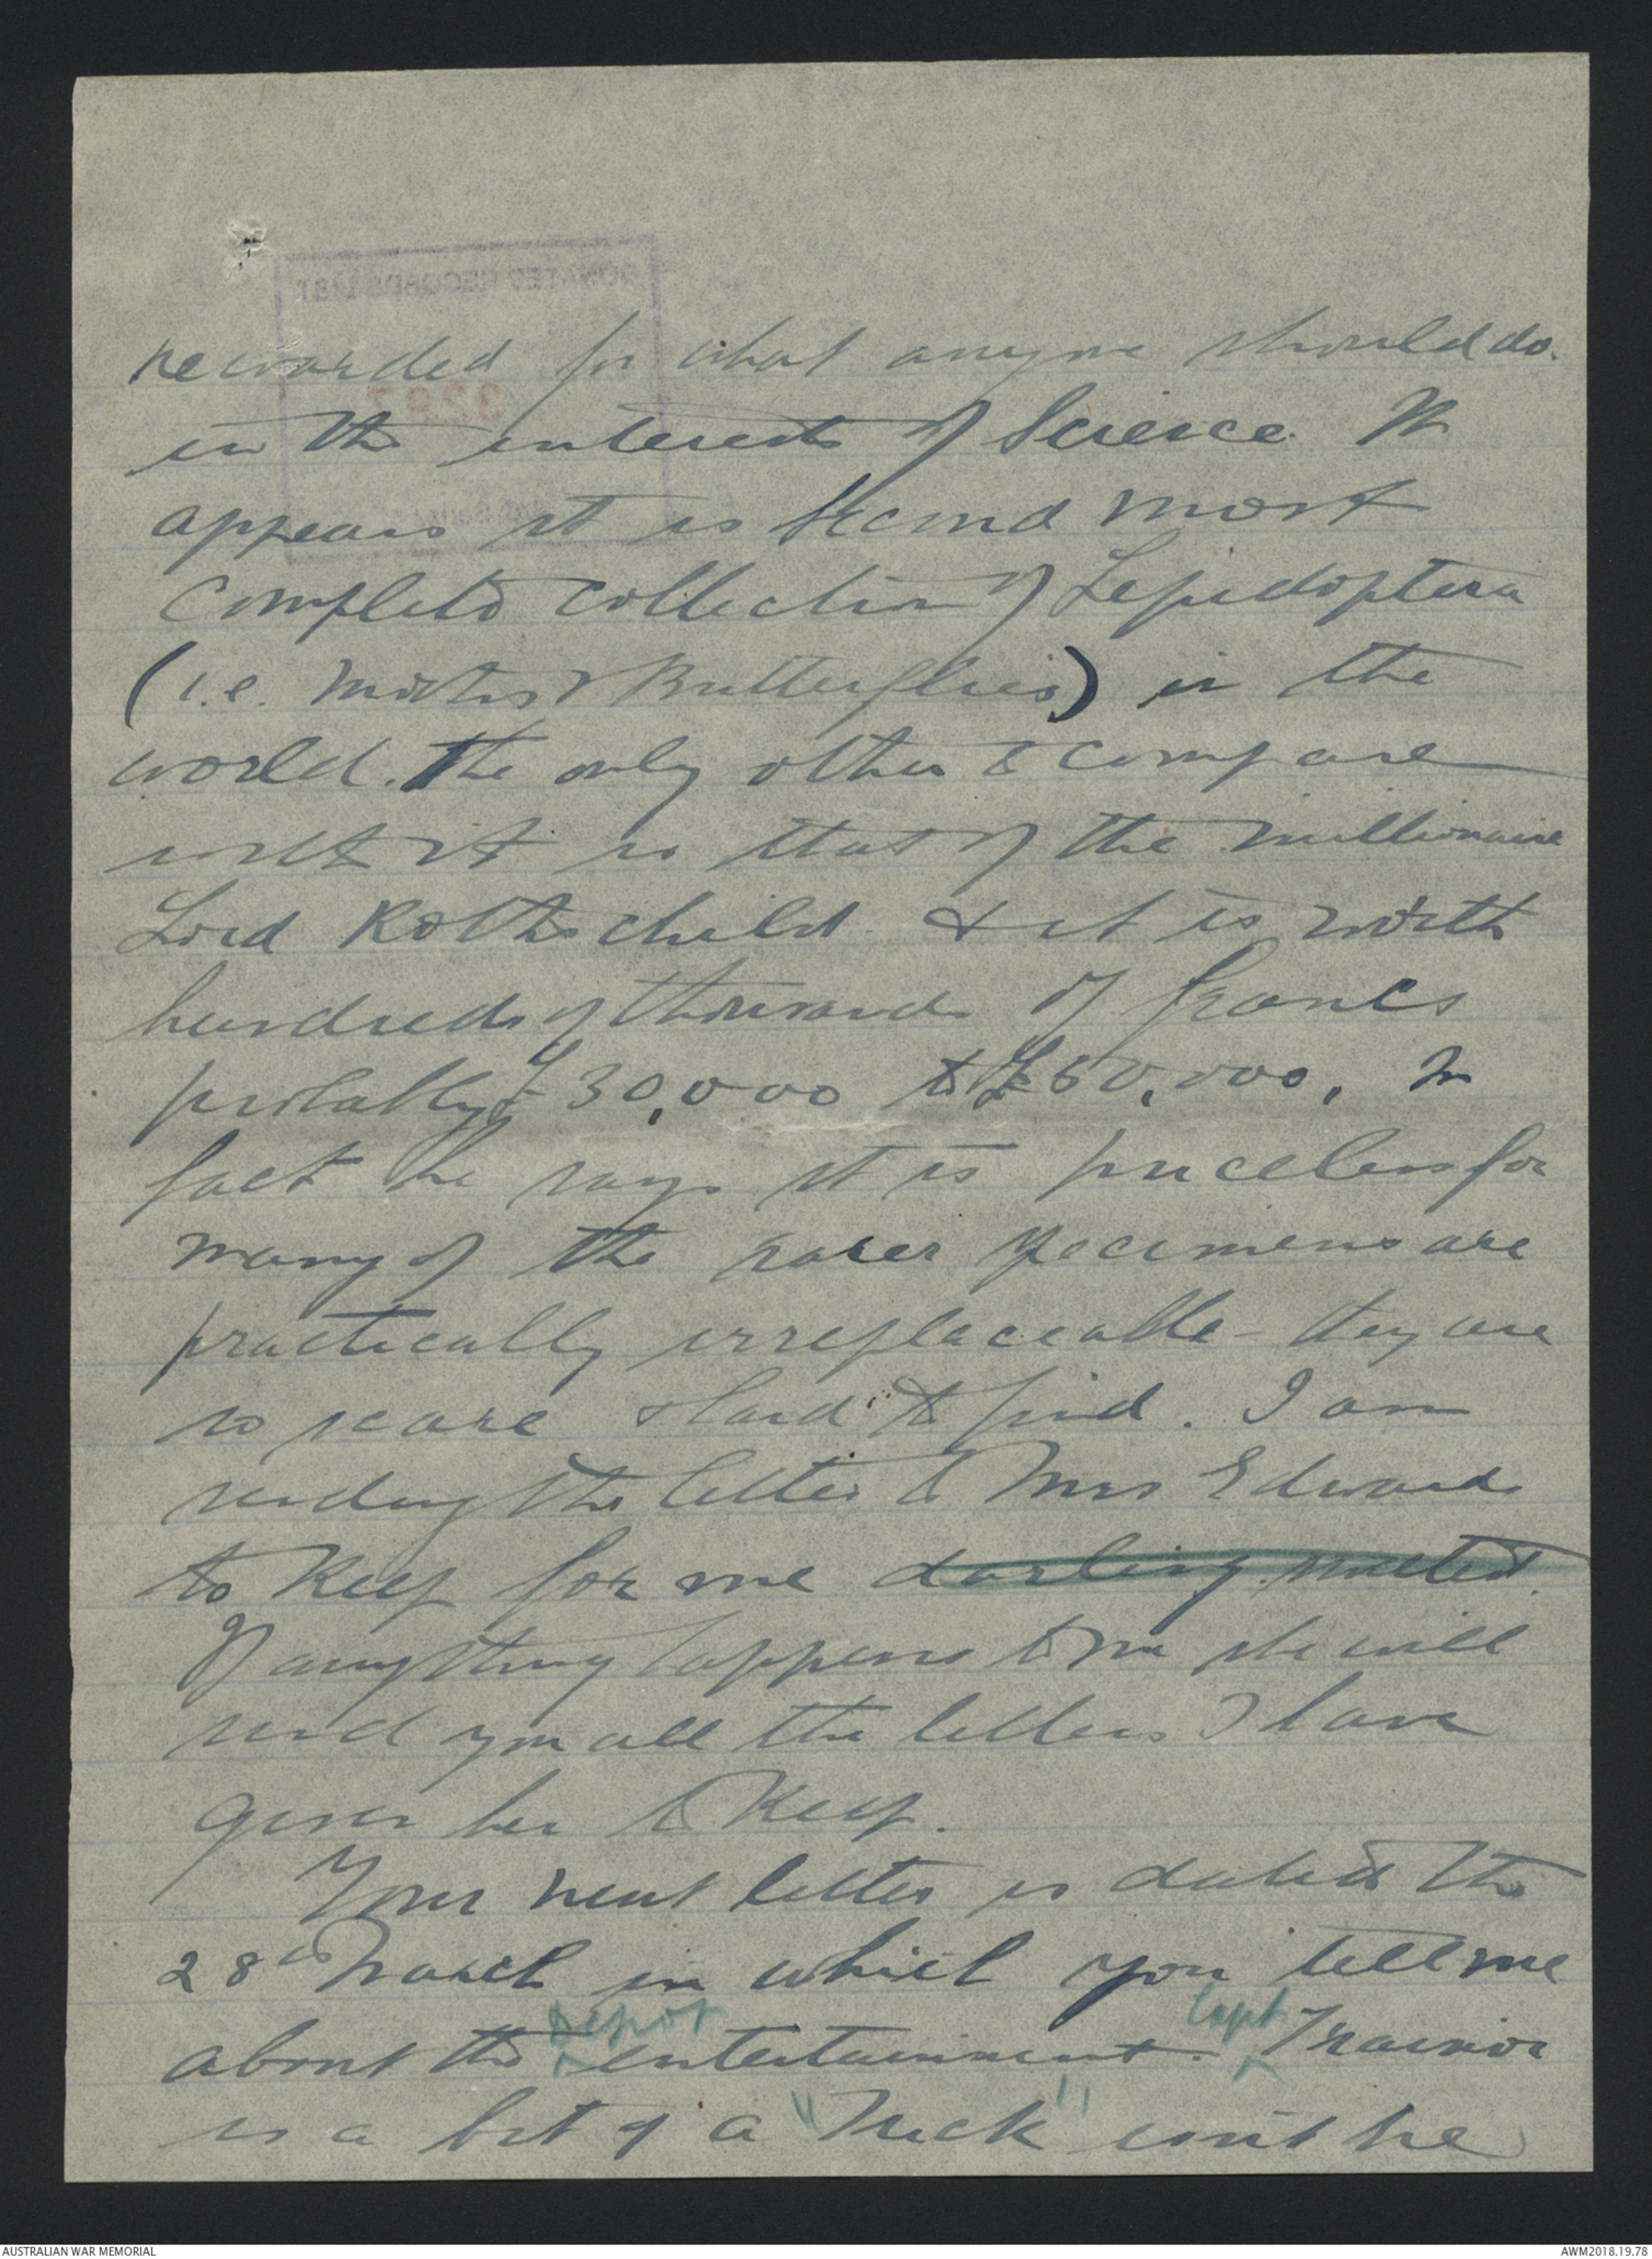 DONATED RECORDS LIST
3297
rewarded for what anyone should do
in the interests of Science. It
appears it is second most
complete collection of Lepidoptera
(i.e. Moths & Butterflies) in the
world. The only other to compare
with it is that of the millionaire
Lord Rothschild & it is worth
hundreds of thousands of francs
probably £30,000 to £50,000, In
fact he says it is priceless for
many of the rarer specimens are
practically irreplaceable - they are
so scarce & hard to find. I am
sending the letter to Mrs Edwards
to keep for me darling
If anything happens to me she will
send you all the letters I have
given her to keep.
Your next letter is dated the
28th March in which you tell me
about the Depot entertainment. Capt Trainor
is a bit of a "Trick" isn't he
AUSTRALIAN WAR MEMORIAL
AWM2018.19.78